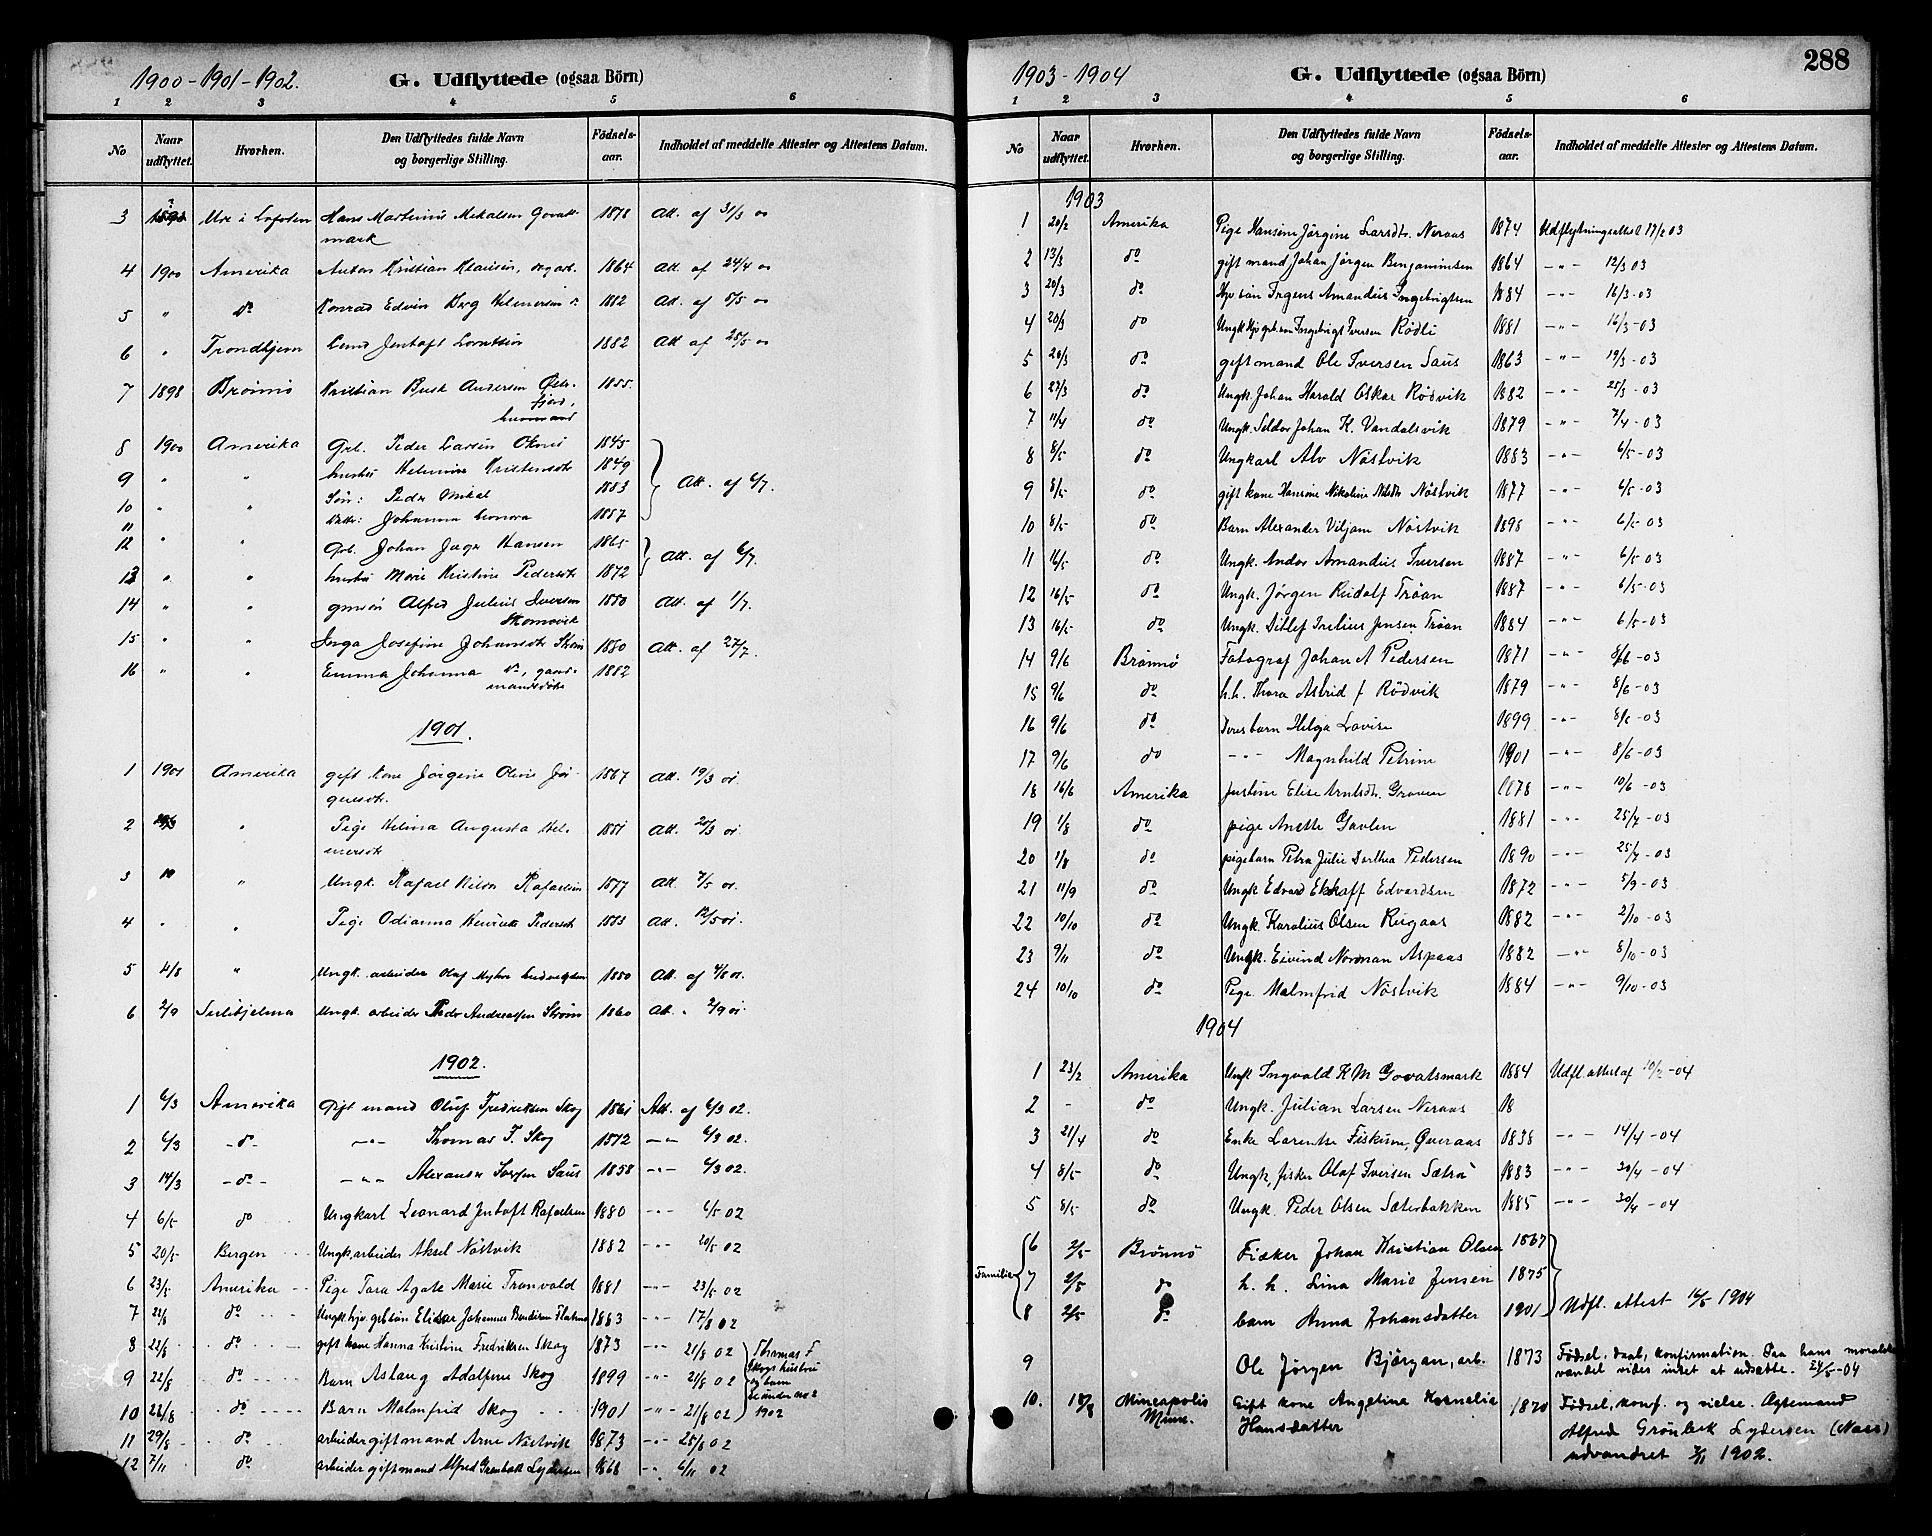 1900-1901-1902.
G. Udflyttede (ogsaa Börn)
1 2 3 4 5 6
No
Naar udflyttet.
Hvorhen.
Den Udflyttedes fulde Navn og borgerlige Stilling.
Födsels-aar.
Indholdet af meddelte Attester og Attestens Datum.
3 Ure i Lofoten Hans Martinus Mikalsen Govats- 1878 Att. af 31/3 00
mark
4 1900 Amerika Anton Kristian Klausen, 1864 Att. af 24/4 00
5 " do Konrad Edvin Berg 1882 Att. af 5/5 00
6 " Trondhjem Jentoft 1882 Att af 28/5 00
7 1898 Brönnö Kristian Busk Andersen 1855.
fjord,
8 1900 Amerika Grb. Peder Larsen 1845
9 " " hustru 1849
10 " " Sön: Peder Mikal 1883 Att. af 6/7.
11 Dattr: Johanna 1887
12 " " Grb. Johan Jæger Hansen 1865
13 " " hustru Marie Kristine Pedersdtr 1872 Att. af 6/7.
14 " " Alfred Julius Iversen 1880 Att. af 1/7.
15 " " Inga Josefine Johansdtr Ström 1880 Att. af 27/7.
16 " " Emma Johanna do, gaard- 1882
mandsdtr
1901.
1 1901 Amerika gift kone Jörgine Oline Jör- 1867 Att. 19/3 01.
gensdtr.
2 " Pige Helina Augusta Hel- 1881 Att. 20/3 01.
mersdtr
3 " Ungk. Rafael Rafaelsen 1877 Att. 7/5 01.
4 " " Pige Odianna Henriette Pedersdtr 1883 Att. 12/5 01.
5 4/8 " Ungk. arbeider Olaf 1880 Att. af 4/8 01.
6 2/9 Sulitjelma Ungk. arbeider Peder Andreassen Ström 1860 Att. " 2/9 01.
1902.
1 6/3 Amerika Gift mand Oluf Fredriksen Skog 1861 Att. af 6/3 02.
2 6/3 -do- -"- Thomas F. Skog 1872 -"- 6/3 02.
3 14/3 -do- -"- Alexander Saus 1858 -"- 6/3 02.
4 6/5 do Ungkarl Leonard Jentoft Rafaelsen 1880 -"- 6/5 02
5 20/5 Bergen Ungk. arbeider Aksel Nöstvik 1882 -"- 20/5 02
6 23/5 Amerika Pige Tara Agate Marie Tranvald 1881 -"- 23/5 02
7 22/8 do Ungk. hjv. gbr.sön Johannes 1883 -"- 17/8 02
8 22/8 do gift kone Hanna Kristine Fredriksen Skog 1873 -"- 21/8 02 Thomas F.
Skogs hustru
9 22/8 do Barn Aslaug Adolfine Skog 1899 -"- 21/8 02 og barn
se under no 2
10 22/8 do Barn Malmfrid Skog 1901 -"- 21/8 02 1902
11 29/8 do arbeider gift mand Arne Nöstvik 1873 -"- 25/8 02
12 7/11 do arbeider gift mand Alfred Grönbek Lydersen 1868 -"- 6/11 02
1903-1904
G. Udflyttede (ogsaa Börn)
288
1 2 3 4 5 6
No
Naar udflyttet.
Hvorhen.
Den Udflyttedes fulde Navn og borgerlige Stilling.
Födsels-aar.
Indholdet af meddelte Attester og Attestens Datum.
1903
1 20/2 Amerika Pige Hansine Jörgine Larsdtr. Neraas 1874 Udflytningsattest 17/2 03
2 13/3 do gift mand Johan Jörgen Benjaminsen 1864 -"- 12/3 03
3 20/3 do Amandus Ingebrigtsen 1884 -"- 16/3-03
4 20/3 do Ungk. Ingebrigt Iversen Rödli 1881 -"- 16/3-03
5 20/3 do gift mand Ole Iversen Saus 1863 -"- 19/3-03
6 27/3 do Ungk. Johan Harald Oskar Rödvik 1882 -"- 25/3-03
7 11/4 do Ungk. Johan K. Vandalsvik 1879 -"- 7/4-03
8 8/5 do Ungkarl Alv Nöstvik 1883 -"- 6/5-03
9 8/5 do gift kone Hansine Nikoline Nilsdtr Nöstvik 1877 -"- 6/5-03
10 8/5 do Barn Alexander Viljam Nöstvik 1898 -"- 6/5-03
11 16/5 do Ungk. Andor Amandus Iversen 1887 -"- 6/5-03
12 16/5 do Ungk. Jörgen Rudolf Tröan 1887 -"- 6/5-03
13 16/5 do Ungk. Ditlef Jensen Tröan 1884 -"- 6/5-03
14 9/6 Brönnö Fotograf Johan A Pedersen 1871 -"- 8/6-03
15 9/6 do h.h. Thora Astrid f Rödvik 1879 -"- 8/6-03
16 9/6 do Deres barn Helga Lovise 1899 -"- 8/6-03
17 9/6 do -"- Magnhild Petrine 1901 -"- 8/6-03
18 16/6 Amerika Justine Elise Arntsdtr. 1878 -"- 10/6-03
19 1/8 do pige Anette 1881 -"- 25/7-03
20 1/8 do pigebarn Petra Julie Dorthea Pedersen 1890 -"- 25/7-03
21 11/9 do Ungk Edvard Edvardsen 1872 -"- 5/9-03
22 10/10 do Ungk. Karolius Olsen Rugaas 1882 -"- 2/10-03
23 9/11 do Ungk. Eivind Norman Aspaas 1882 -"- 8/10-03
24 10/10 do Pige Malmfrid Nöstvik 1884 -"- 9/10-03
1904
1 23/2 Amerika Ungk Ingvald K M Govatsmark 1884 Udfl. attest af 10/2-04
2 - do Ungk. Julian Larsen Neraas 18
3 21/4 do Enke Larentse Fiskum, Qveraas 1838 -"- 14/4-04
4 8/5 do Ungk, fisker Olaf Iversen Sætra 1883 -"- 30/4-04
5 8/5 do Ungk. Peder Olsen Sæterbakken 1885 -"- 30/4-04
6 2/5 Brönnö Fisker Johan Kristian Olsen 1867
Familie 7 2/5 do h. h. Lina Marie Jensen 1875
8 2/5 do barn Anna Johansdatter 1901 Udfl. attest 16/5 1904
9 Ole Jörgen Björgan, arb. 1873 Födsel, daab, konfirmation. Paa hans moralske
vandel vides intet at udsætte. 24/5-04
10. Mineapolis Gift kone Angelina Kornelia 1870 Födsel, konf. og vielse. Ægtemand
Minn. Hansdatter Alfred Grönbek Lydersen (Næss)
udvandret 7/11 1902.